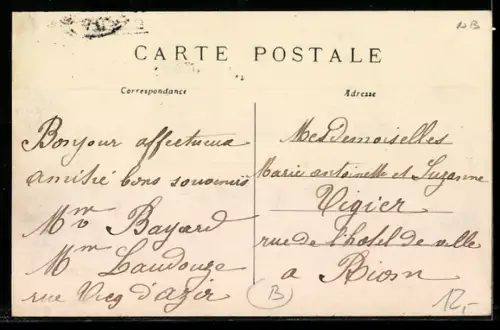 NB
CARTE POSTALE
Correspondance
Bonjour affectueux
amitié bons souvenirs
Mme Vve Bayard
Mme Laudouze
rue Vicq d'azir
Adresse
Mesdemoiselles
Marie antoinette et Suzanne
Vigier
rue de l'hotel de ville
a Riom
B
12,-